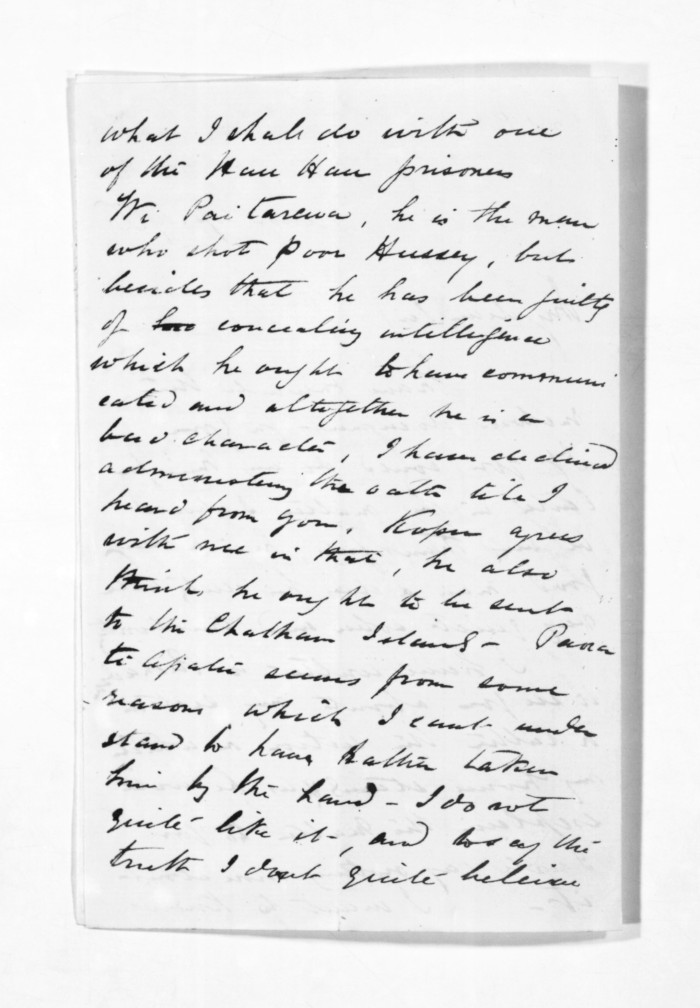 what I shall do with one
of the Hau Hau prisoners
Wi Paitarewa, he is the man
who shot poor Hussey, but
besides that he has been guilty
of concealing intelligence
which he ought to have communi
cated and altogether he is a
bad character, I have declined
administering the oath till I
heard from you. Kopu agrees
with me in that, he also
thinks he ought to be sent
to the Chatham Islands - Paora
te Apatu seems from some
reasons which I cant under
stand to have rather taken
him by the hand - I do not
quite like it, and to say the
truth I dont quite beleive